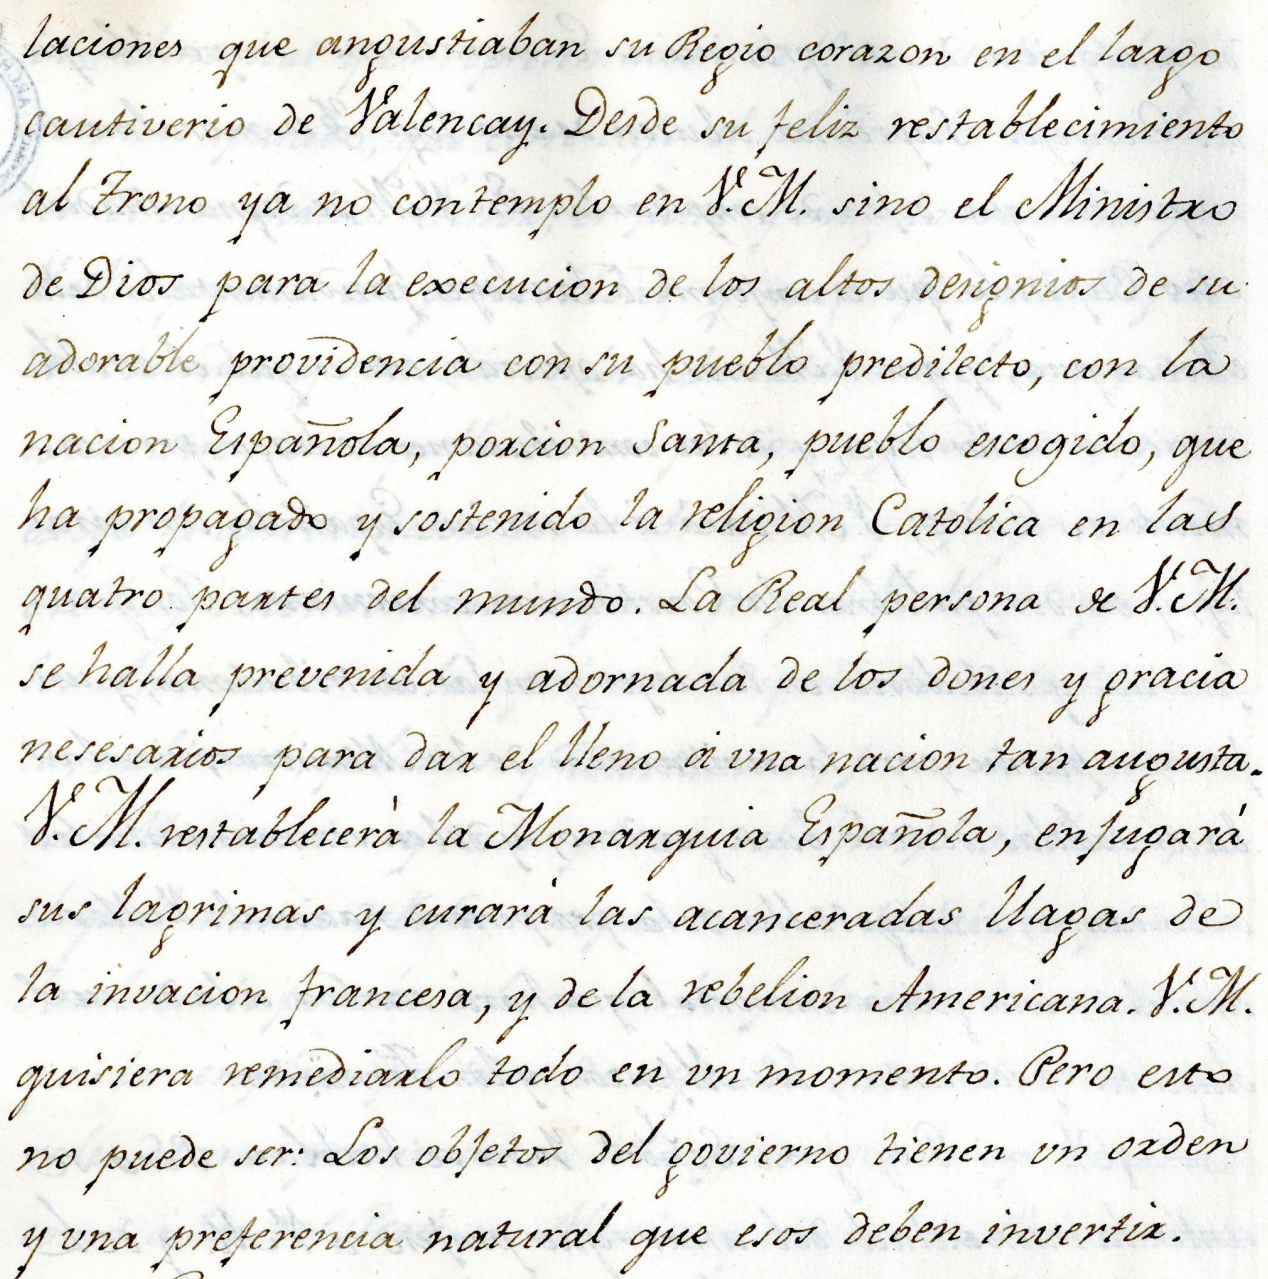 laciones que angustiaban su Regio corazon en el largo
cautiverio de Valencay. Desde su feliz restablecimiento
al Trono ya no contemplo en V.M. sino el Ministro
de Dios para la execucion de los altos designios de su
adorable providencia con su pueblo predilecto, con la
nacion Española, porcion Santa, pueblo escogido, que
ha propagado y sostenido la religion Catolica en las
quatro partes del mundo. La Real persona de V.M.
se halla prevenida y adornada de los dones y gracia
nesesarios para dar el lleno á vna nacion tan augusta.
V.M. restablecerà la Monarquia Española, enjugará
sus lagrimas y curarà las acanceradas llagas de
la invacion francesa, y de la rebelion Americana. V.M.
quisiera remediarlo todo en vn momento. Pero esto
no puede ser: Los objetos del govierno tienen vn orden
y vna preferencia natural que esos deben invertir.